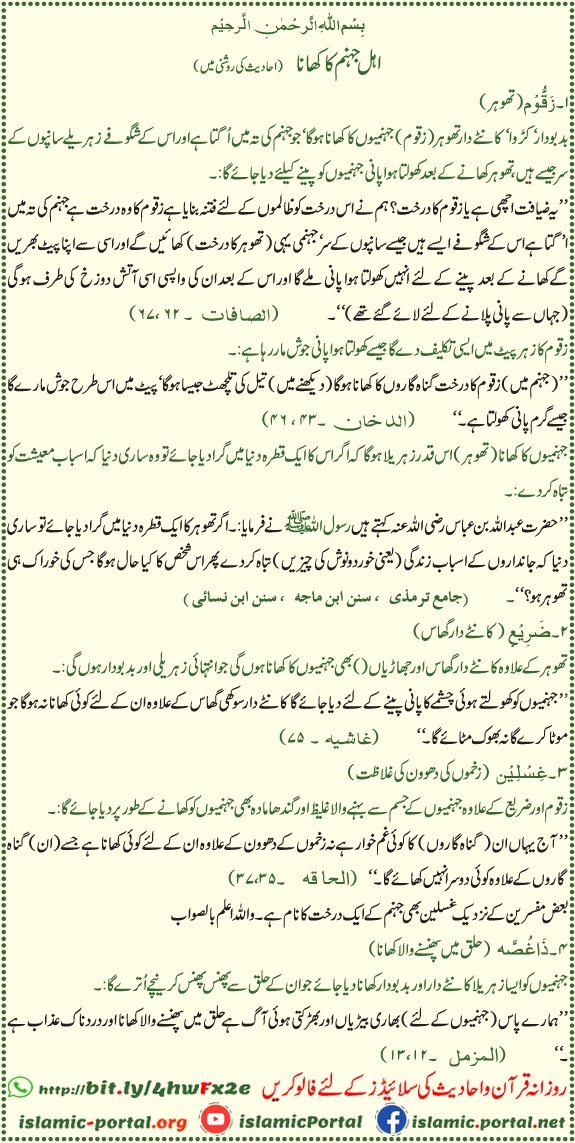 بِسْمِ اللهِ الرَّحْمٰنِ الرَّحِيْمِ
اہل جہنم کا کھانا (احادیث کی روشنی میں)
۱۔زَقُّوْم(تھوہر)
بدبودار‘ کڑوا‘ کانٹے دار تھوہر (زقوم) جہنمیوں کا کھانا ہوگا‘ جو جہنم کی تہ میں اُگتا ہے اور اس کے شگوفے زہریلے سانپوں کے
سر جیسے ہیں، تھوہر کھانے کے بعد کھولتا ہوا پانی جہنمیوں کو پینے کیلئے دیا جائے گا:۔
’’یہ ضیافت اچھی ہے یا زقوم کا درخت؟ ہم نے اس درخت کو ظالموں کے لئے فتنہ بنایا ہے زقوم کا وہ درخت ہے جہنم کی تہ میں
اگتا ہے اس کے شگوفے ایسے ہیں جیسے سانپوں کے سر‘ جہنمی یہی (تھوہر کا درخت) کھائیں گے اور اسی سے اپنا پیٹ بھریں
گے کھانے کے بعد پینے کے لئے انہیں کھولتا ہوا پانی ملے گا اور اس کے بعد ان کی واپسی اسی آتش دوزخ کی طرف ہوگی
(جہاں سے پانی پلانے کے لئے لائے گئے تھے)‘‘۔ (الصافات ۔ ۶۲، ۶۷)
زقوم کا زہر پیٹ میں ایسی تکلیف دے گا جیسے کھولتا ہوا پانی جوش مار رہا ہے:۔
’’(جہنم میں) زقوم کا درخت گناہ گاروں کا کھانا ہوگا (دیکھنے میں) تیل کی تلچھٹ جیسا ہوگا‘ پیٹ میں اس طرح جوش مارے گا
جیسے گرم پانی کھولتا ہے۔‘‘ (الدخان ۔۴۳، ۴۶)
جہنمیوں کا کھانا (تھوہر) اس قدر زہریلا ہوگا کہ اگر اس کا ایک قطرہ دنیا میں گرا دیا جائے تو وہ ساری دنیا کہ اسباب معیشت کو
تباہ کردے:۔
’’حضرت عبداللہ بن عباس رضی اللہ عنہ کہتے ہیں رسول اللہﷺ نے فرمایا:۔ اگر تھوہر کا ایک قطرہ دنیا میں گرا دیا جائے تو ساری
دنیا کہ جانداروں کے اسباب زندگی (یعنی خوردونوش کی چیزیں) تباہ کردے پھر اس شخص کا کیا حال ہوگا جس کی خوراک ہی
تھوہر ہو؟‘‘۔ (جامع ترمذی ، سنن ابن ماجه ، سنن ابن نسائی)
۲۔ضَرِیْع (کانٹے دار گھاس)
تھوہر کے علاوہ کانٹے دار گھاس اور جھاڑیاں () بھی جہنمیوں کا کھانا ہوں گی جو انتہائی زہریلی اور بدبودار ہوں گی:۔
’’جہنمیوں کو کھولتے ہوئی چشمے کا پانی پینے کے لئے دیا جائے گا کانٹے دار سوکھی گھاس کے علاوہ ان کے لئے کوئی کھانا نہ ہوگا جو
موٹا کرے گا نہ بھوک مٹائے گا۔‘‘ (غاشیه ۔ ۷۵)
۳۔غِسْلِیْن (زخموں کی دھوون کی غلاظت)
زقوم اور ضریع کے علاوہ جہنمیوں کے جسم سے بہنے والا غلیظ اور گندھا مادہ بھی جہنمیوں کو کھانے کے طور پر دیا جائے گا:۔
’’آج یہاں ان (گناہ گاروں) کا کوئی غم خوار ہے نہ زخموں کے دھوون کے علاوہ ان کے لئے کوئی کھانا ہے جسے (ان) گناہ
گاروں کے علاوہ کوئی دوسرا نہیں کھائے گا۔‘‘ (الحاقه ۔۳۵، ۳۷)
بعض مفسرین کے نزدیک غسلین بھی جہنم کے ایک درخت کا نام ہے۔ واللہ اعلم بالصواب
۴۔ذَاغُصَّه (حلق میں پھنسنے والا کھانا)
جہنمیوں کو ایسا زہریلا کانٹے دار اور بدبودار کھانا دیا جائے جو ان کے حلق سے پھنس پھنس کر نیچے اُترے گا:۔
’’ہمارے پاس (جہنمیوں کے لئے) بھاری بیڑیاں اور بھڑکتی ہوئی آگ ہے حلق میں پھنسنے والا کھانا اور دردناک عذاب ہے
۔‘‘ (المزمل ۔۱۲، ۱۳)
روزانہ قرآن و احادیث کی سلائیڈز کے لئے فالو کریں http://bit.ly/4hwFx2e
islamic-portal.org islamicPortal islamic.portal.net